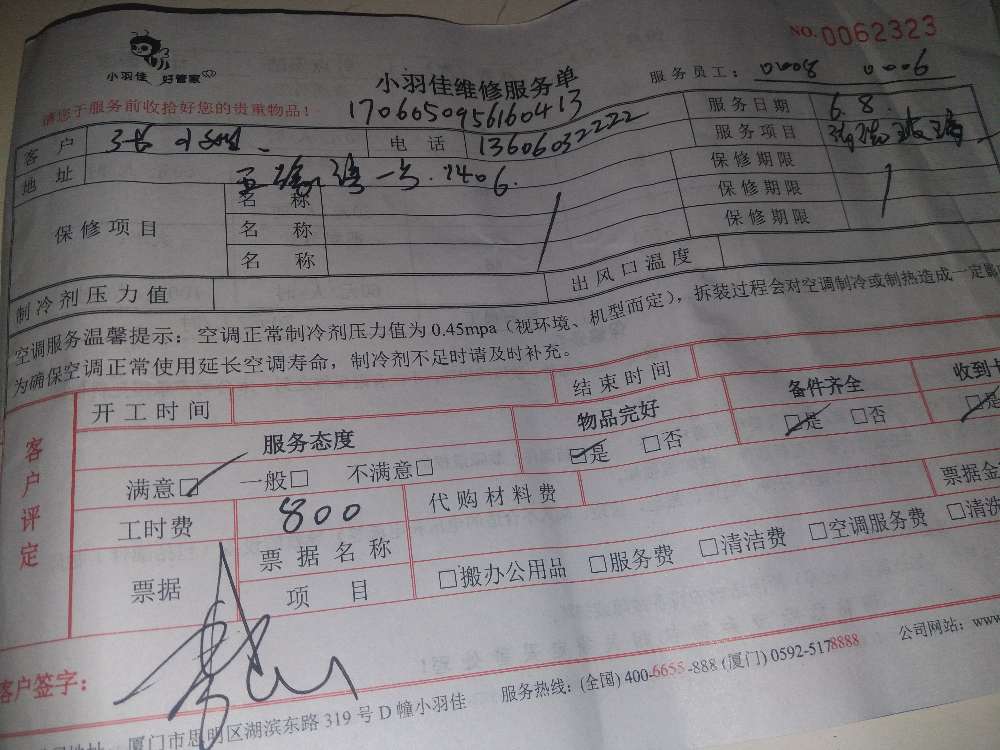 小羽佳 好管家
NO.0062323
小羽佳维修服务单
服务员工：01008 0006
请您于服务前收拾好您的贵重物品！
17060509561604 13
服务日期 6.8.
客户
电话 13606032222
服务项目
地址 一号.1406.
保修期限
保修项目
名称
保修期限
名称
保修期限
名称
制冷剂压力值
出风口温度
空调服务温馨提示：空调正常制冷剂压力值为0.45mpa（视环境、机型而定），拆装过程会对空调制冷或制热造成一定影
为确保空调正常使用延长空调寿命，制冷剂不足时请及时补充。
客户评定
开工时间
结束时间
服务态度
物品完好
备件齐全
收到
满意□ 一般□ 不满意□
□是 □否
□是 □否
□是
工时费 800
代购材料费
票据金
票据
票据名称
项目
□搬办公用品 □服务费 □清洁费 □空调服务费 □清洗
客户签字：
厦门市思明区湖滨东路319号D幢小羽佳 服务热线：(全国) 400-6655-888 (厦门) 0592-5178888 公司网站：www